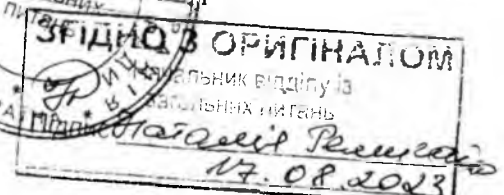 питань
ЗГІДНО З ОРИГІНАЛОМ
Начальник відділу із
загальних питань
Підпис Наталія
17.08.2023